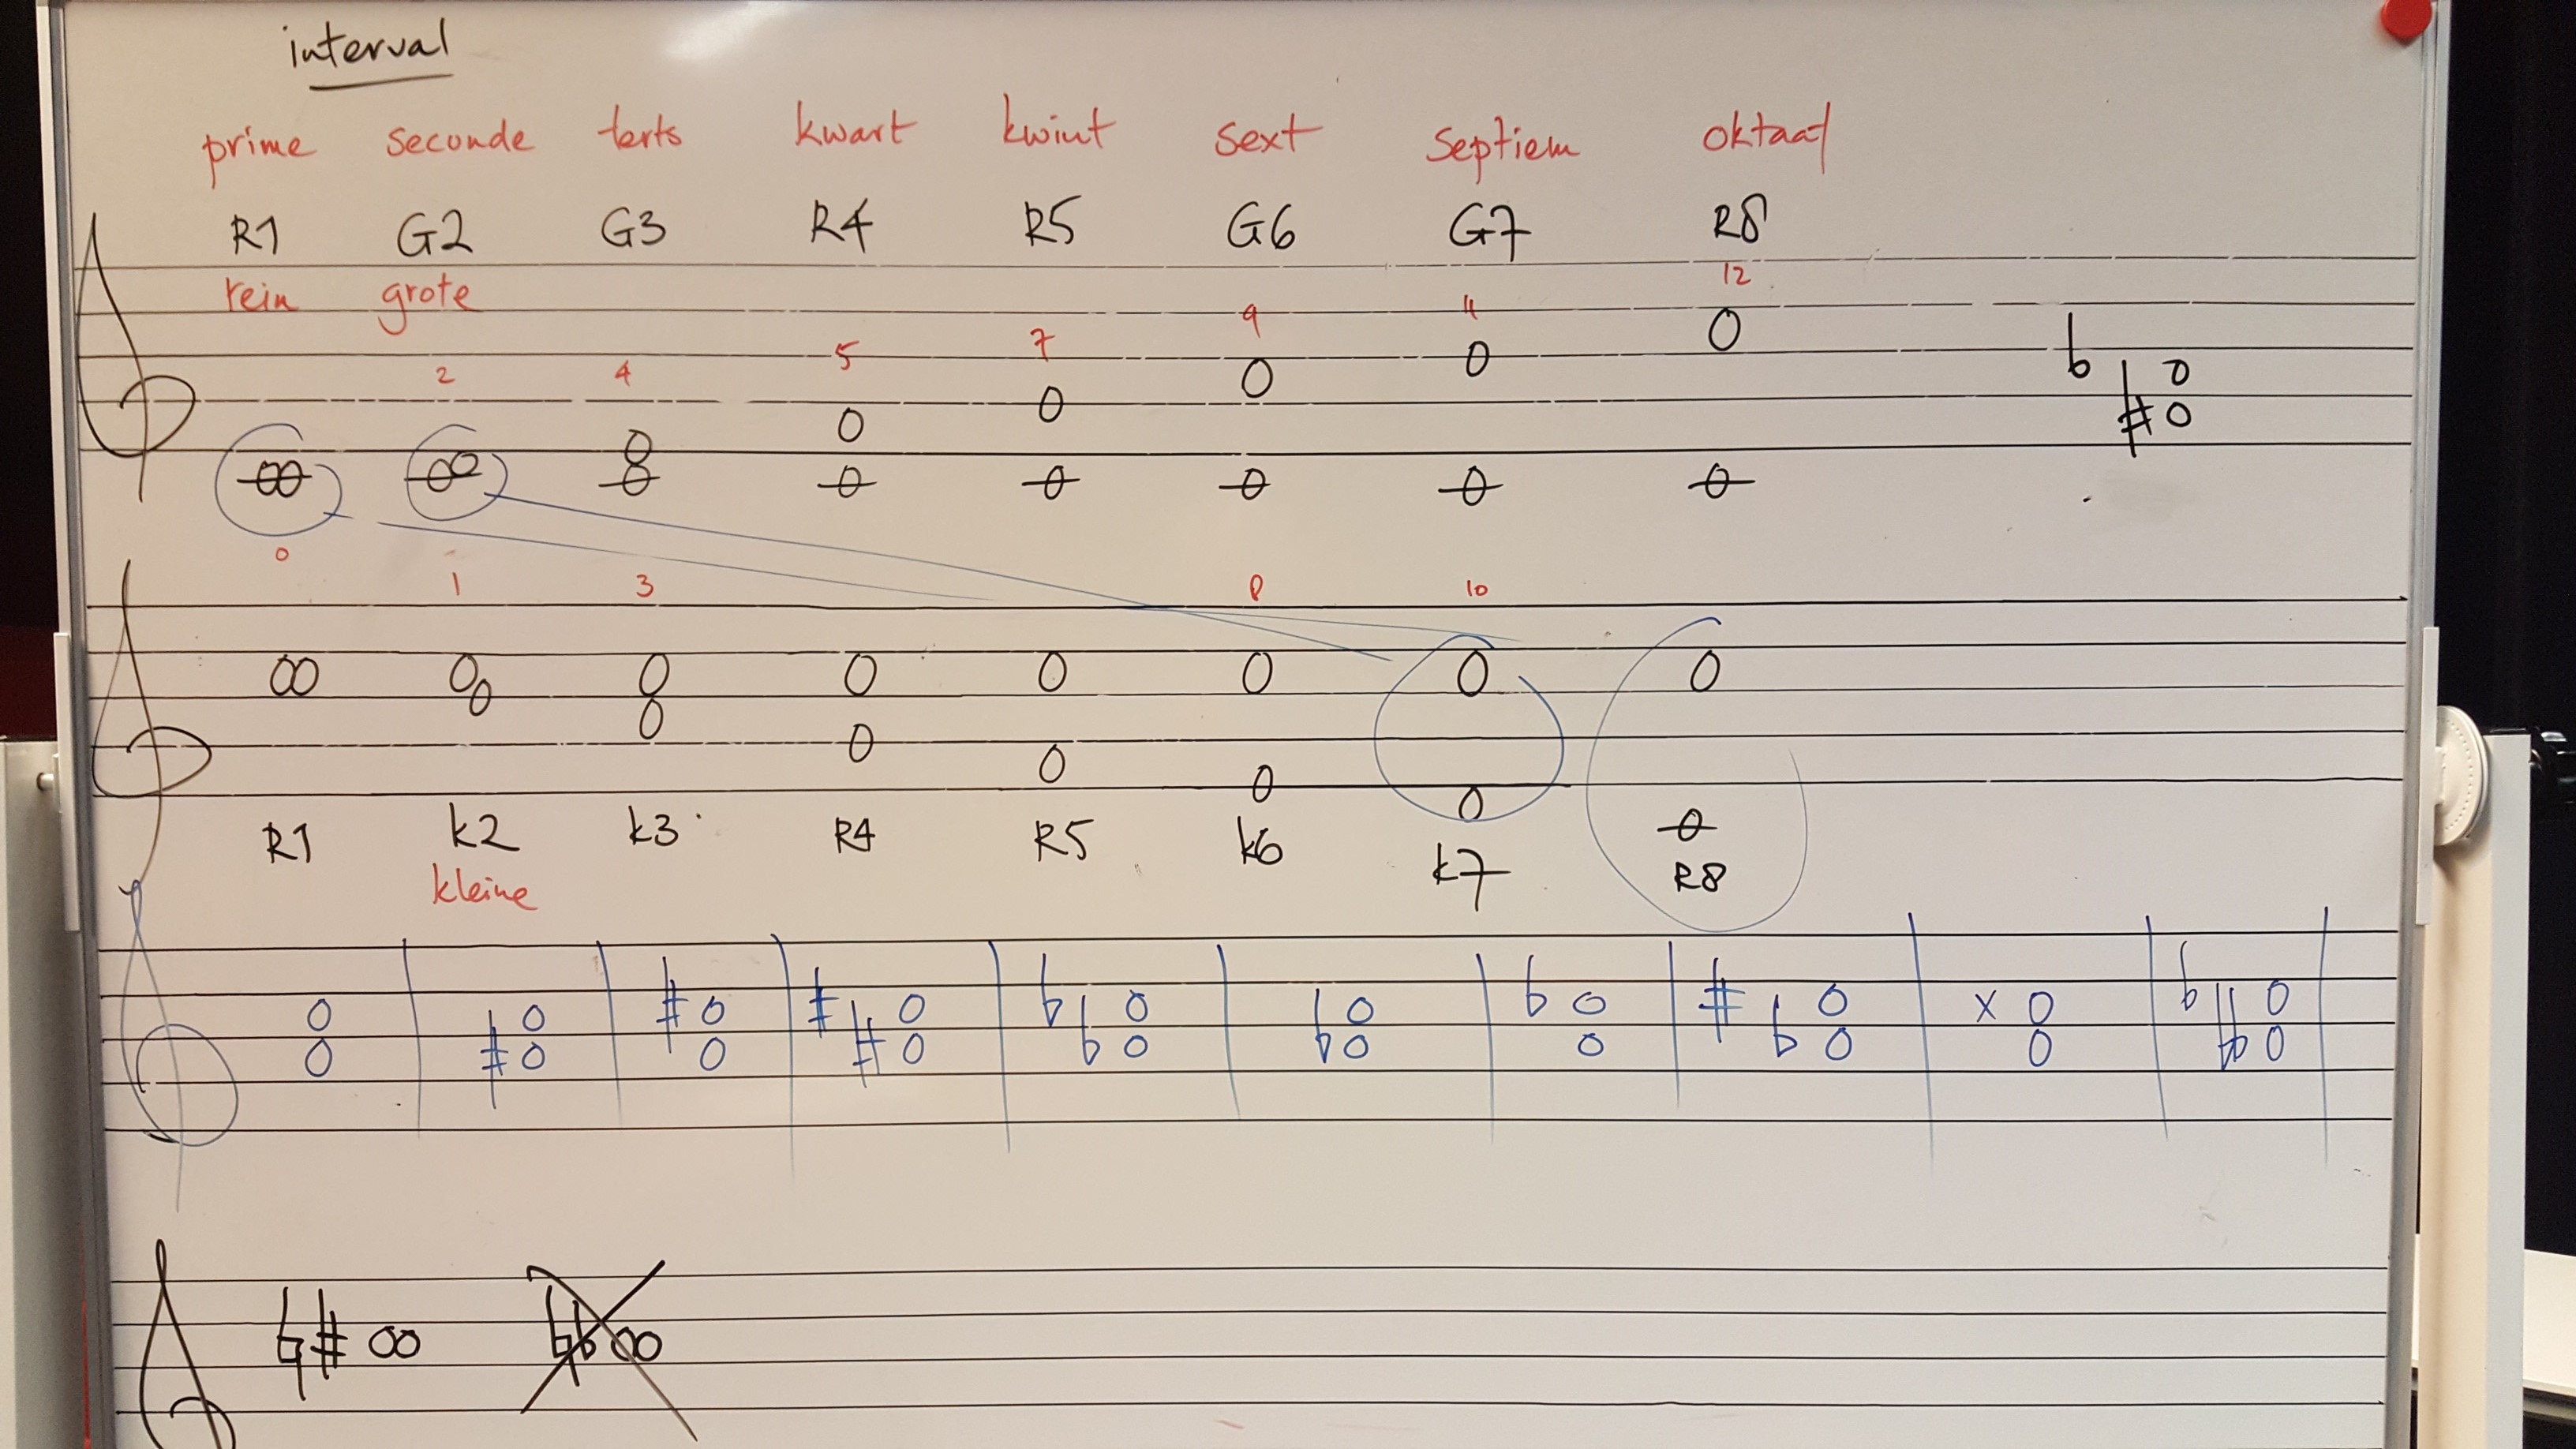 interval
prime seconde terts kwart kwint sext septiem oktaaf
R1 G2 G3 R4 R5 G6 G7 R8
rein grote
2 4 5 7 9 11 12
0 1 3 8 10
R1 k2 k3 R4 R5 k6 k7 R8
kleine